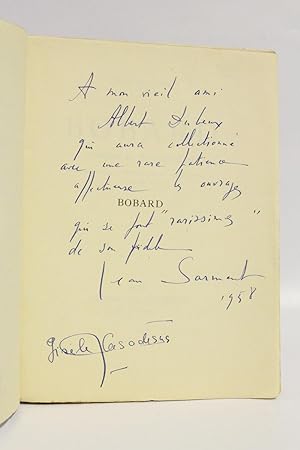 A mon vieil ami
Albert Dubeux
qui aura collectionné
avec une rare patience
affectueuse les ouvrages
BOBARD
qui se font "rarissimes"
de son fidèle
Jean Sarment
1958
Gisèle Casadesus